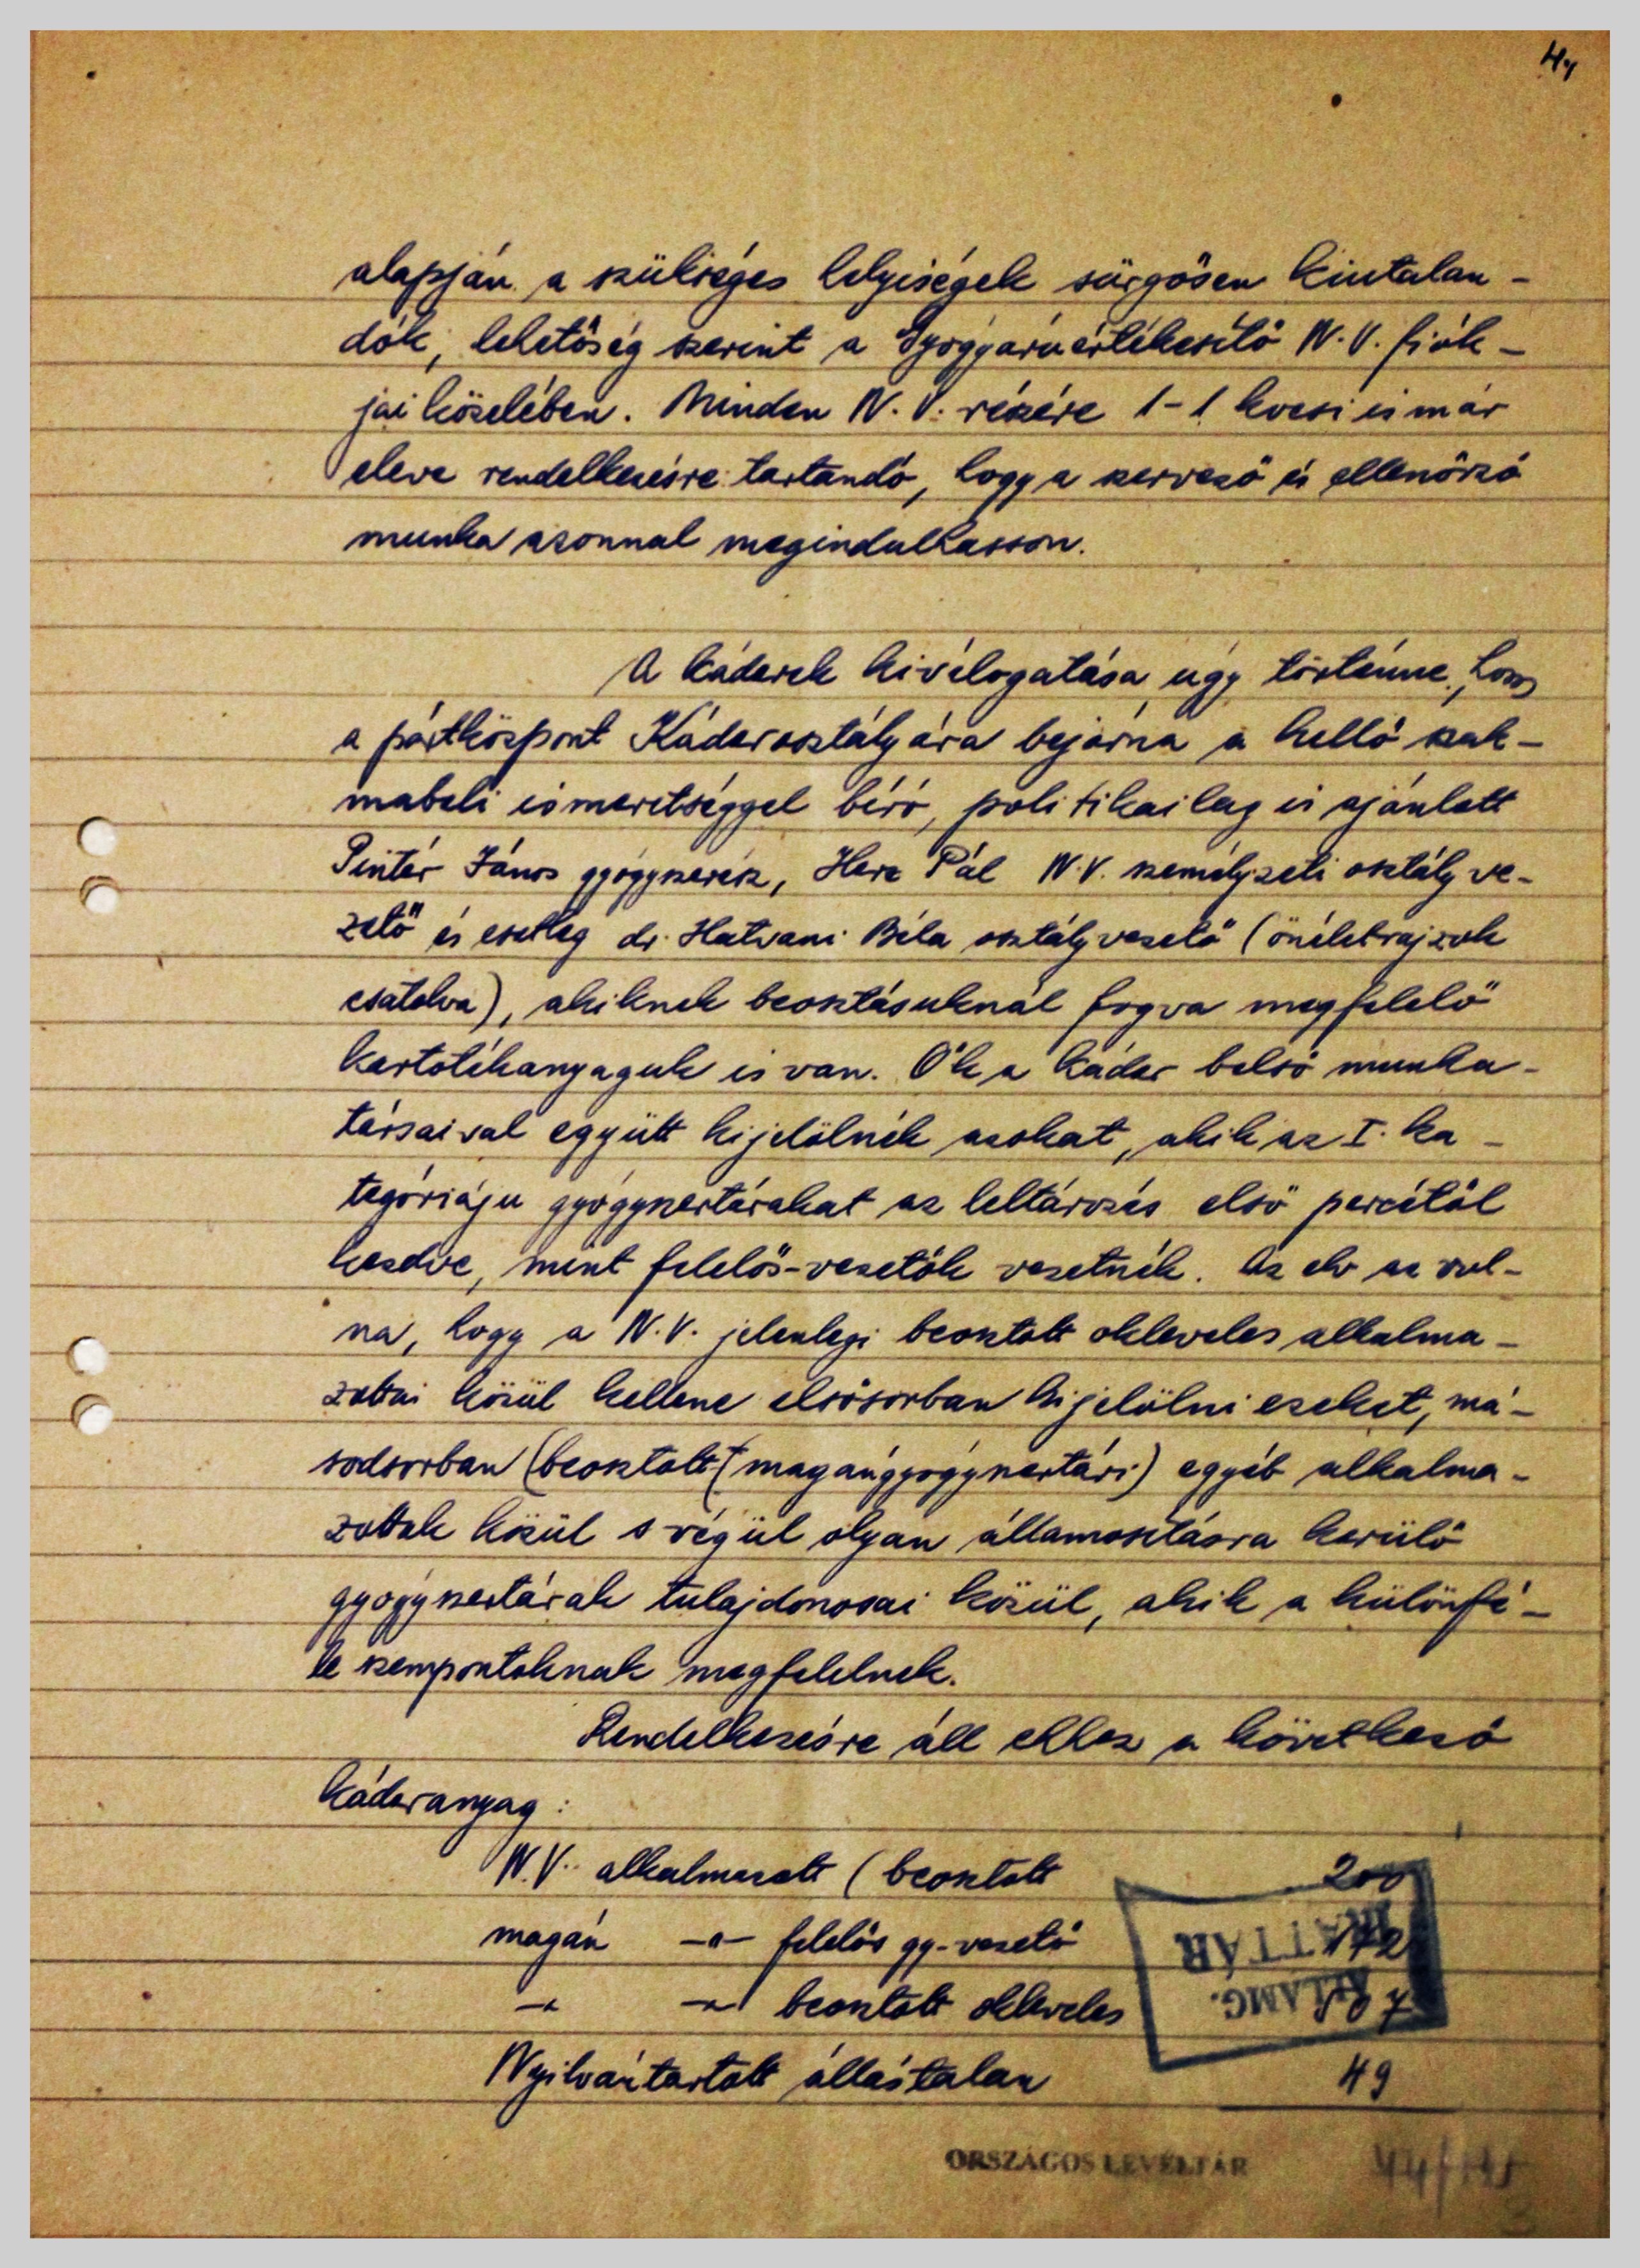 4,
alapján a szükséges helyiségek sürgősen kiutalan-
dók, lehetőség szerint a Gyógyáruértékesítő N.V. fiók-
jai közelében. Minden N.V. részére 1-1 kocsi is már
eleve rendelkezésre tartandó, hogy a szervező és ellenőrző
munka azonnal megindulhasson.
A káderek kiválogatása úgy történne, hogy
a pártközpont Káderosztályára bejárna a kellő szak-
mabeli ismeretséggel bíró, politikailag is ajánlott
Pintér János gyógyszerész, Herz Pál N.V. személyzeti osztályve-
zető és esetleg dr. Hatvani Béla osztályvezető (önéletrajzok
csatolva), akiknek beosztásuknál fogva megfelelő
kartotékanyaguk is van. Ők a káder belső munka-
társaival együtt kijelölnék azokat, akik az I. ka-
tegóriáju gyógyszertárakat az leltározás első percétől
kezdve, mint felelős-vezetők vezetnék. Az elv az vol-
na, hogy a N.V. jelenlegi beosztott okleveles alkalma-
zottai közül kellene elsősorban kijelölni ezeket, má-
sodsorban (beosztott (magángyógyszertári) egyéb alkalma-
zottak közül s végül olyan államosításra kerülő
gyógyszertárak tulajdonosai közül, akik a különfé-
le szempontoknak megfelelnek.
Rendelkezésre áll ehhez a következő
káderanyag:
N.V. alkalmazott (beosztott 200
magán -"- felelős gy-vezető
-"- -"- beosztott okleveles
ÁLLAMG.
IRATTÁR
Nyilvántartott állástalan 49
ORSZÁGOS LEVÉLTÁR